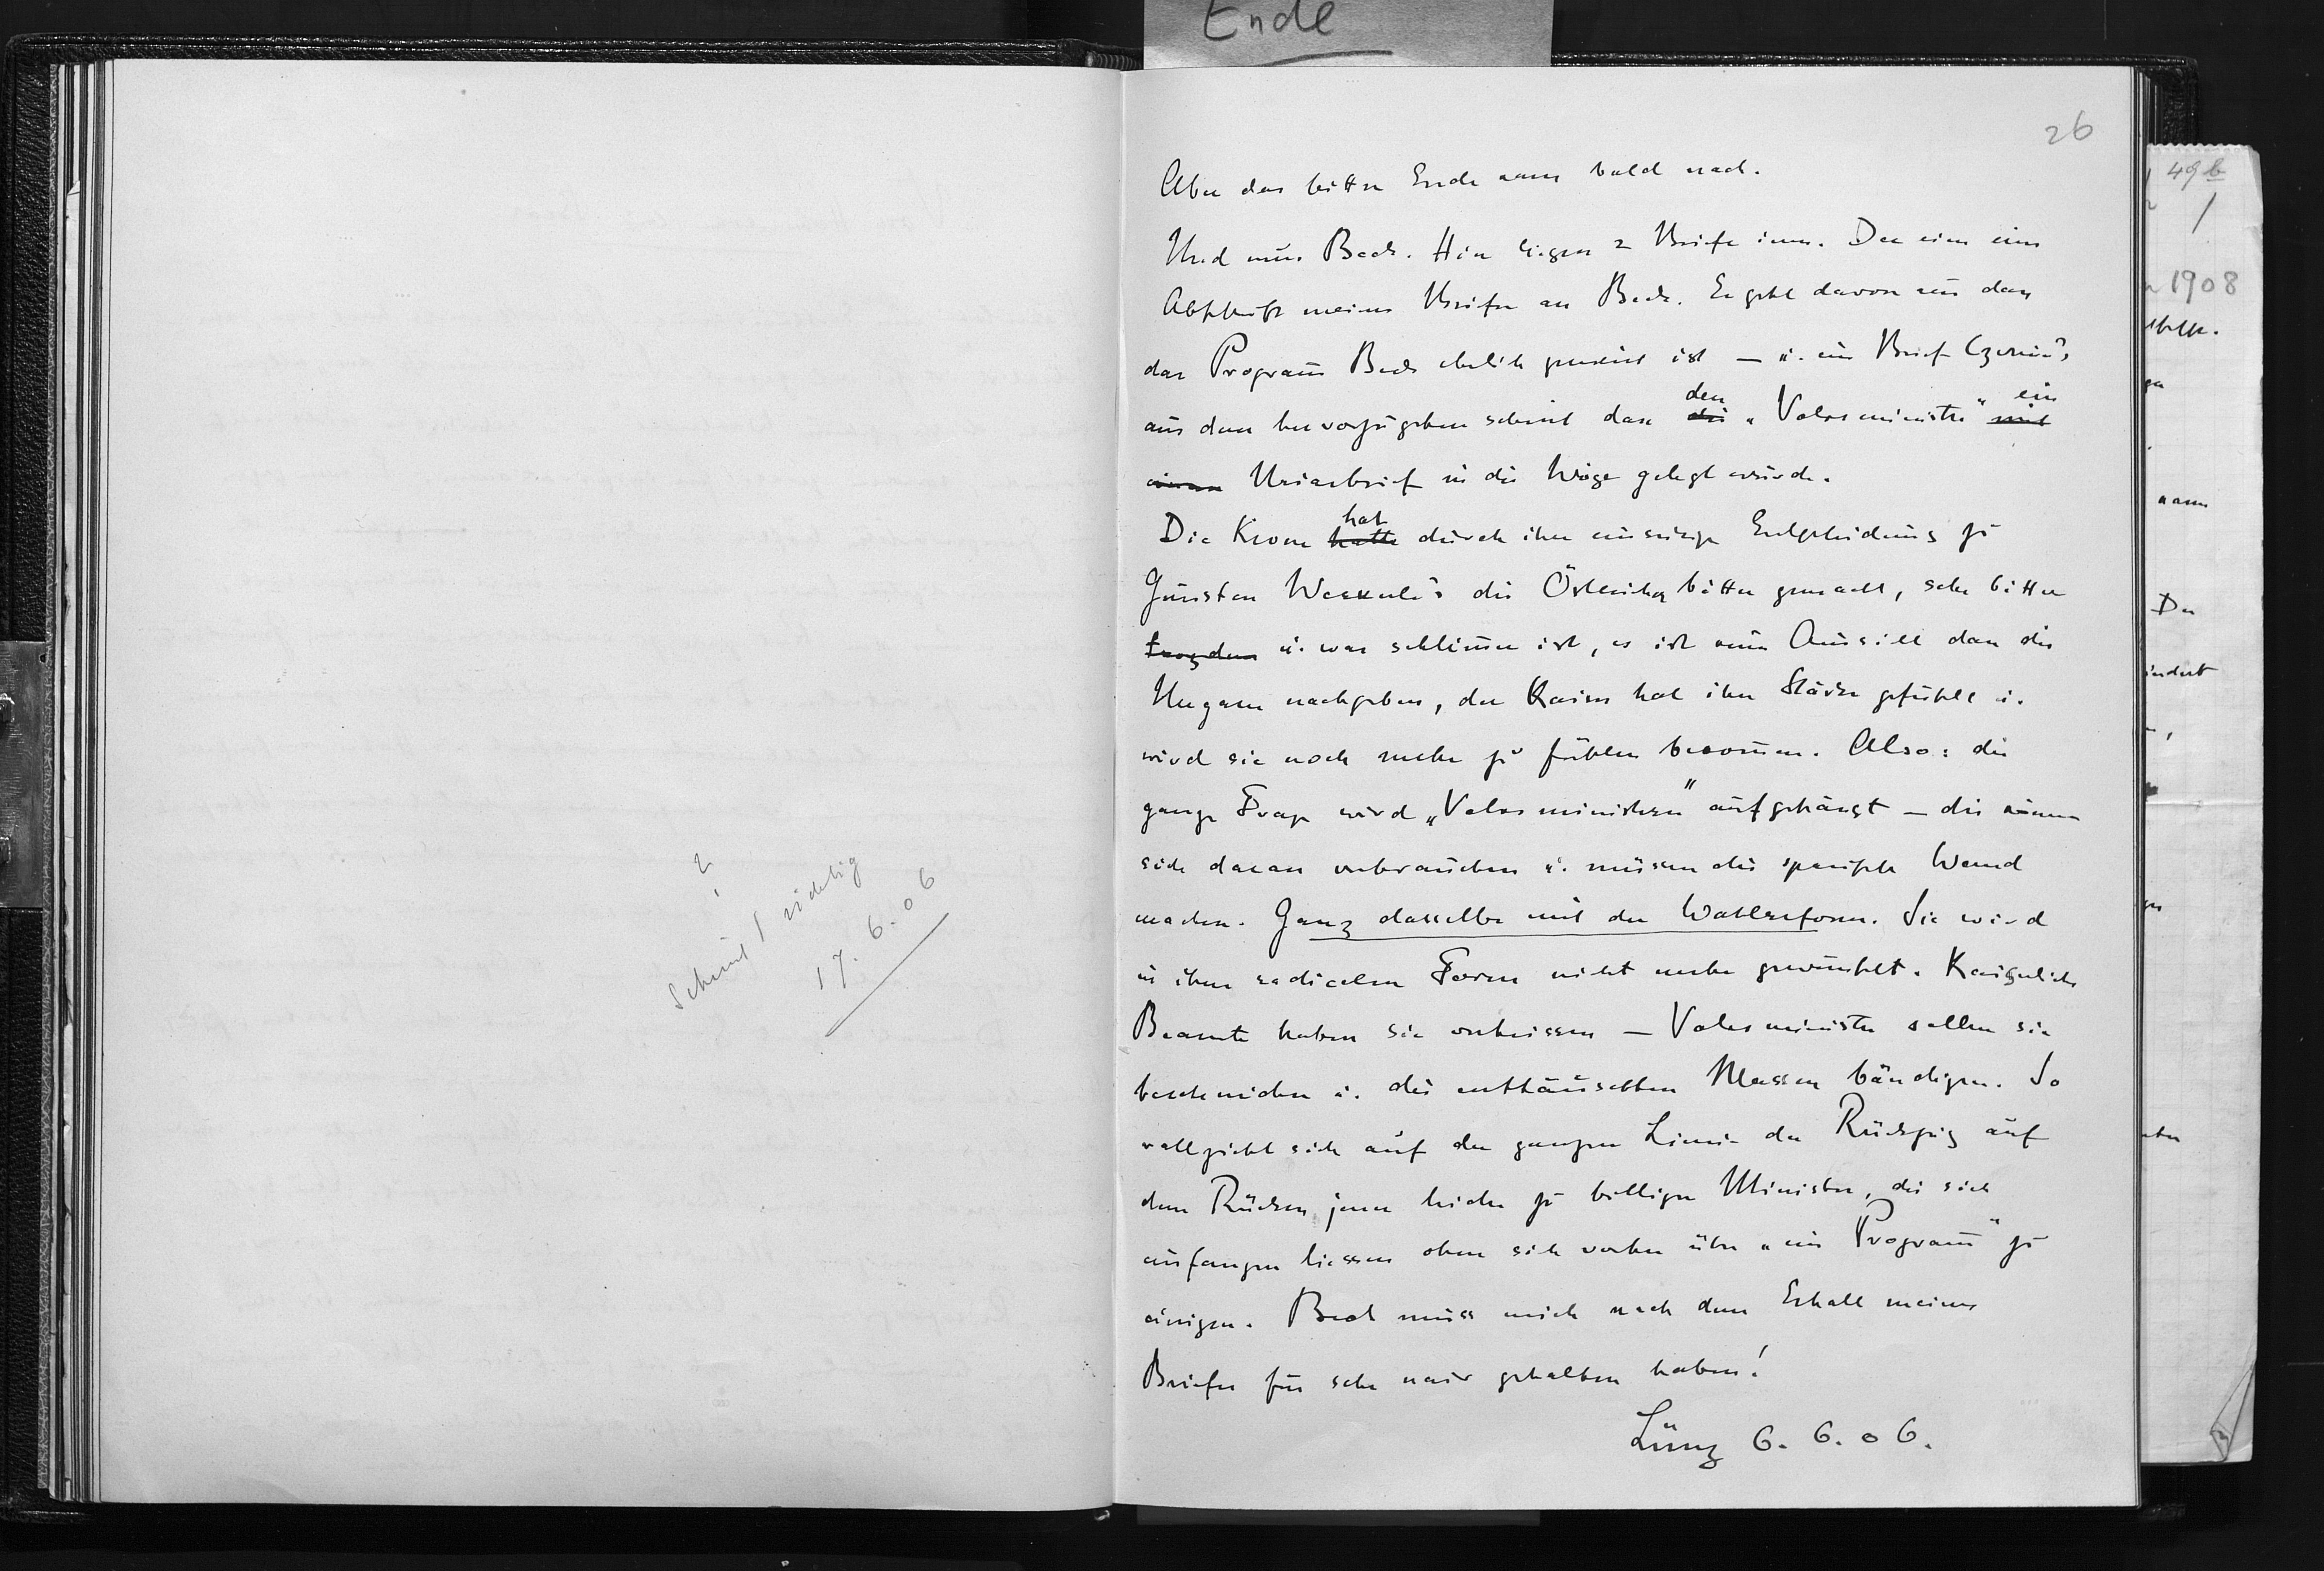 Ende
26
Aber das bittre Ende kam bald nach.
Und nun Beck. Hier liegen 2 Briefe inne. Der eine eine
Abschrift meines Briefes an Beck. Er geht davon aus dass
das Program̄ Becks ehrlich gemeint ist — u. ein Brief Czernin's
aus dem hervorzugehen scheint dass die den „Volksminister" mit ein
einem Uriasbrief in die Wiege gelegt wurde.
Die Krone hatte hat durch ihre einseitige Entscheidung zu
Gunsten Weckerle's die Österreicher bitter gemacht, sehr bitter
trozdem u. was schlim̄er ist, es ist keine Aussicht dass die
Ungarn nachgeben, der Kaiser hat ihre Stärke gefühlt u.
wird sie noch mehr zu fühlen bekom̄en. Also: die
ganze Frage wird „Volksministern" aufgehängt — die können
sich daran verbrauchen u. müssen die spanische Wand
machen. Ganz dasselbe mit der Wahlreform. Sie wird
in ihrer radicalen Form nicht mehr gewünscht. Kaiserliche
Beamte haben sie verheissen — Volksminister sollen sie
beschneiden u. die enttäuschten Massen bändigen. So
vollzieht sich auf der ganzen Linie der Rückzug auf
dem Rücken jener leider zu billigen Minister, die sich
einfangen liessen ohne sich vorher über „ein Program̄" zu
einigen. Beck muss mich nach dem Erhalt meines
Briefes für sehr naiv gehalten haben!
Lunz 6. 6. 06.
?
Scheint richtig
17. 6. 06
49b
1
1908
kann
Der
indert